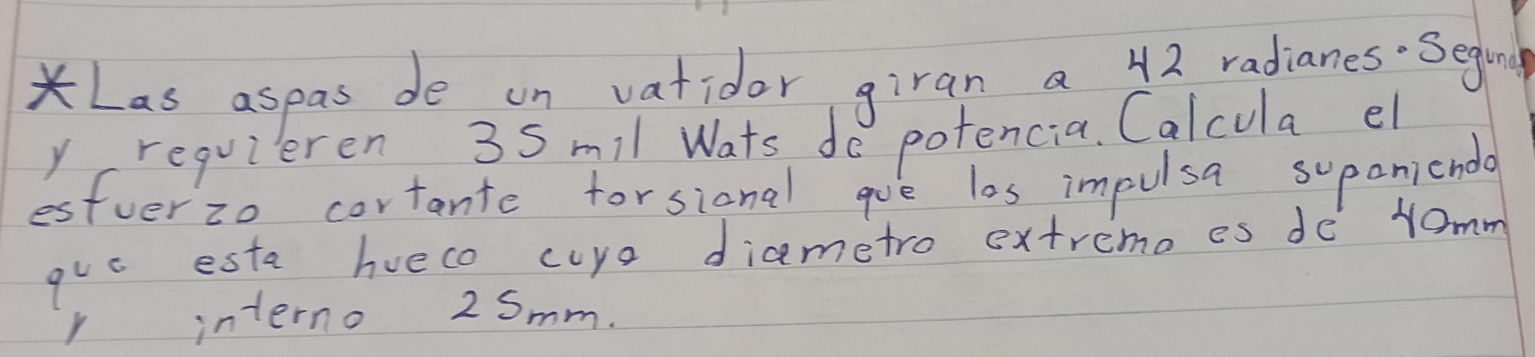 *Las aspas de un vatidor giran a 42 radianes·Segundo
y requieren 35 mil Wats de potencia. Calcula el
esfuerzo cortante torsional que los impulsa suponiendo
que esta hueco cuyo diametro extremo es de 40mm
y interno 25mm.